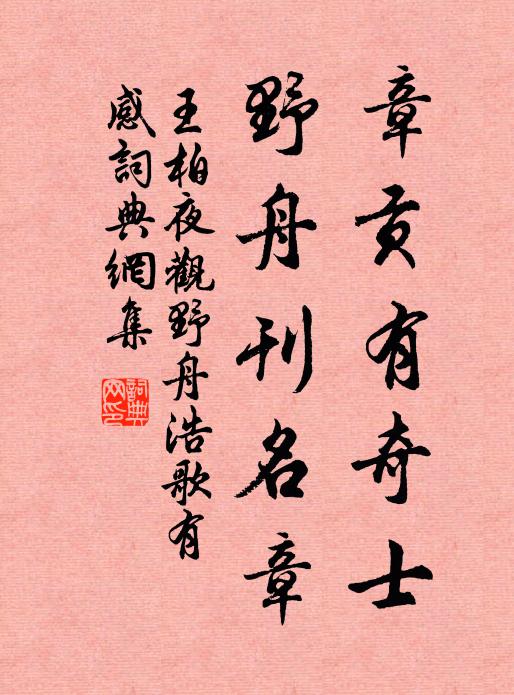 章貢有奇士
野舟刊名章
王柏夜觀野舟浩歌有
感詞典網集
詞典
网印